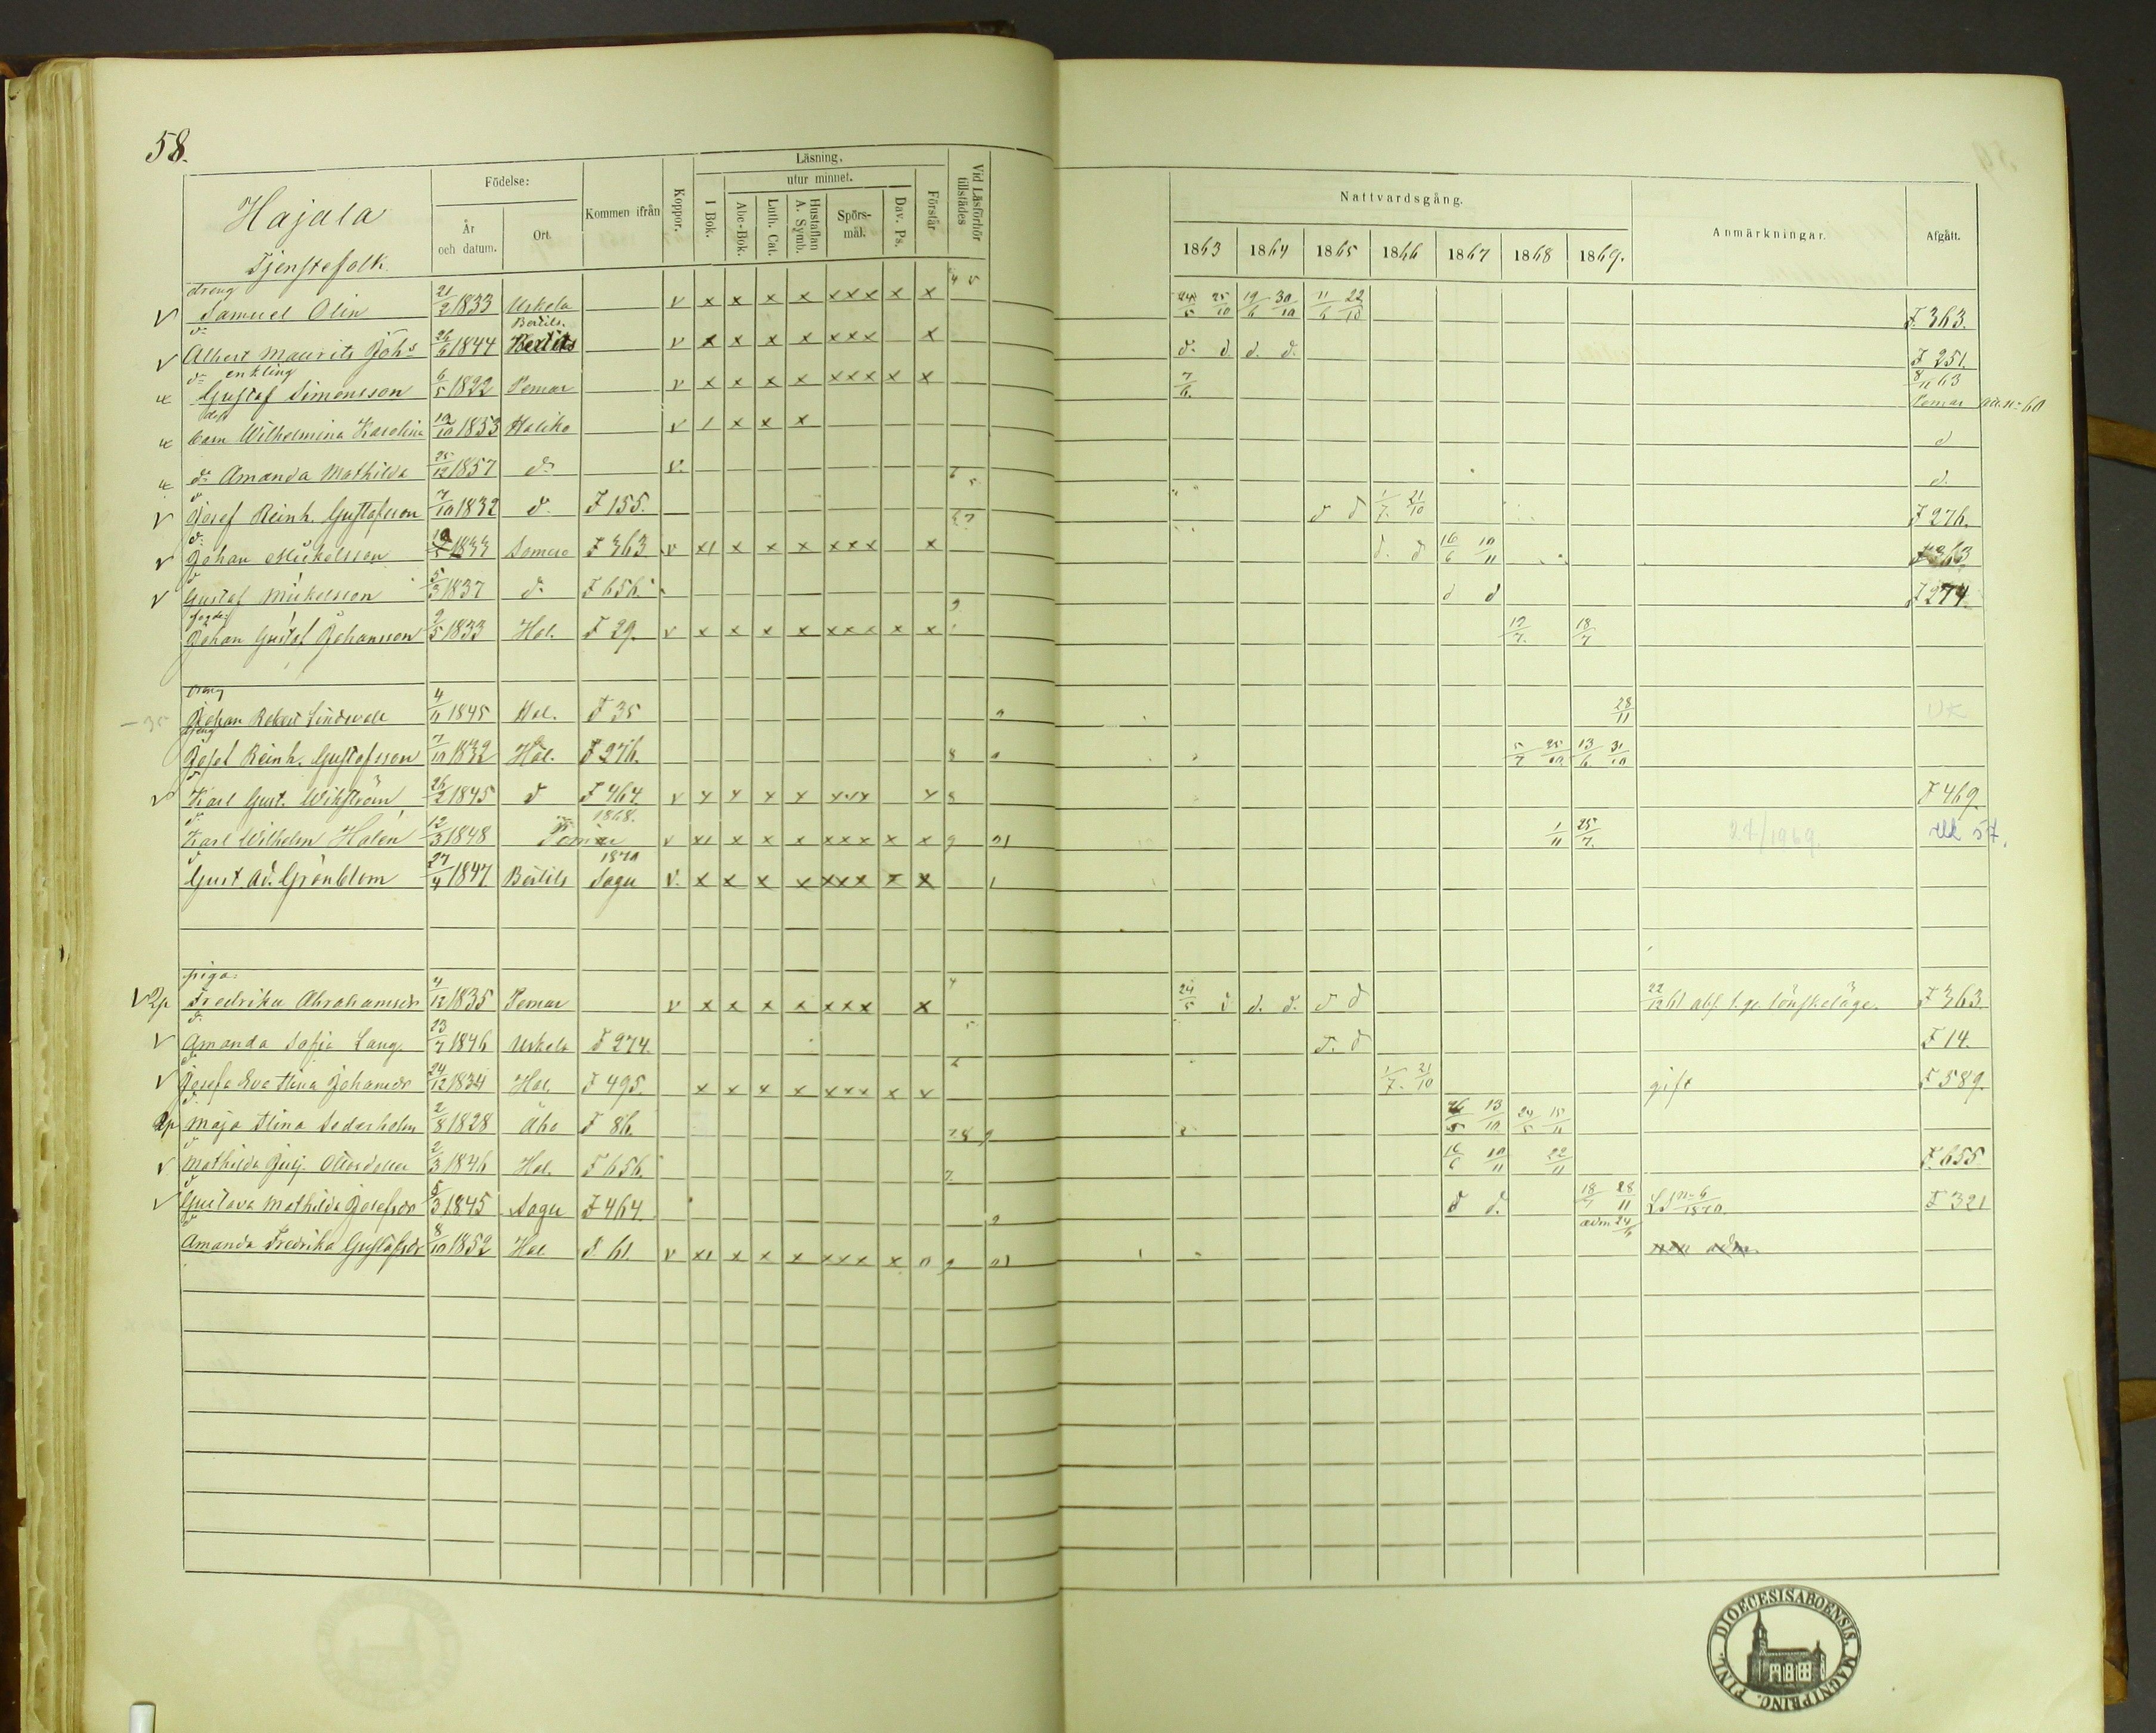 58.
Hajala
Tjenstefolk.
Födelse:
År och datum.
Ort.
Kommen ifrån
Koppor.
Läsning.
I Bok.
utur minnet.
Abc-Bok.
Luth. Cat.
Hustaflan A. Symb.
Spörs-mål.
Dav. Ps.
Förstår.
Vid Läsförhör tillstädes
Nattvardsgång.
1863 1864 1865 1866 1867 1868 1869.
Anmärkningar.
Afgått.
dreng
v Samuel Olin 21/2 1833 Uskela v x x x x xxx x x 4 5 24/5 25/10 19/6 30/10 11/6 22/10 F. 363.
d:o Bertils.
v Albert Maurits Joh:s 26/6 1844 Bertils v x x x x xxx x d. d d. d. F 251.
d:o enkling 8/11 63
Gustaf Simonsson 6/5 1822 Pemar v x x x x xxx x x 7/6. Pemar att. n:o 60
barn Wilhelmina Karolina 1853 Haliko v / x x x d
d:o Amanda Mathilda 25/12 1857 d:o v. d.
d:o
v Josef Reinh. Gustafsson 7/10 1832 d:o F 155. 6 5 d d 1/7. 21/10 F 276.
d:o
v Johan Mickelsson 1833 Somero F 363 v x1 x x x xxx x d. d 16/6 10/11 F 363
d
v Gustaf Mickelsson 5/3 1837 d:o F 656. d d F 274.
Johan Gustaf Johansson 2/5 1833 Hal. F 29. v x x x x xxx x x 9 12/7. 18/7
dreng
— 35 Johan Robert Lindvall 4/11 1845 Hal. F 35 9 28/11
dreng
Josef Reinh. Gustafsson 7/10 1832 Hal. F 276. 8 5/7 25/10 13/6. 31/10
d
v Karl Gust. Wikström 26/2 1845 d F 464. v x x x x xxx x 8 F 469
d:o 1868.
Karl Wilhelm Halen 12/3 1848 Pemar v x1 x x x xxx x x 9 01 1/11 25/7. 27/1969. 57.
d 1870
Gust. Ad. Grönblom 27/4 1847 Bertils Sagu v. x x x x xxx x x 1
piga:
v 2p Fredrika Abrahamsdr 4/12 1835 Pemar v x x x x xxx x 4 24/5 d d. d. d d 22/12 61 abs. f. 1. ge. lönskeläge. F 363.
d:o
v Amanda Sofia Lang. 23/7 1846 Uskela F 274. 5 d. d F 14.
v Josefa Eva Stina Johansdr 24/12 1834 Hal. F 495. x x x x xxx x x 6 1/7. 21/10 gift F 589.
d:o
2p Maja Stina Sedarholm 2/8 1828 Åbo F 86. 7.8 9 26/5 13/10 24/5 15/11
d
v Mathilda Julj. 2/3 1846 Hal. F 656. 7. 16/6 10/11 22/11 F. 655
d
v Gustava Mathilda Josefsdr 5/3 1845 Sagu F 464. 9 d d. 18/7 28/11 n:o 6/1870. F 321
d adm 24/6
Amanda Fredrika Gustafsdr 8/10 1852 Hal F. 61. v x1 x x x xxx x 0 9 01 non adm.
FINL. DIOECESIS ABOENSIS. MAGNI PRINC.